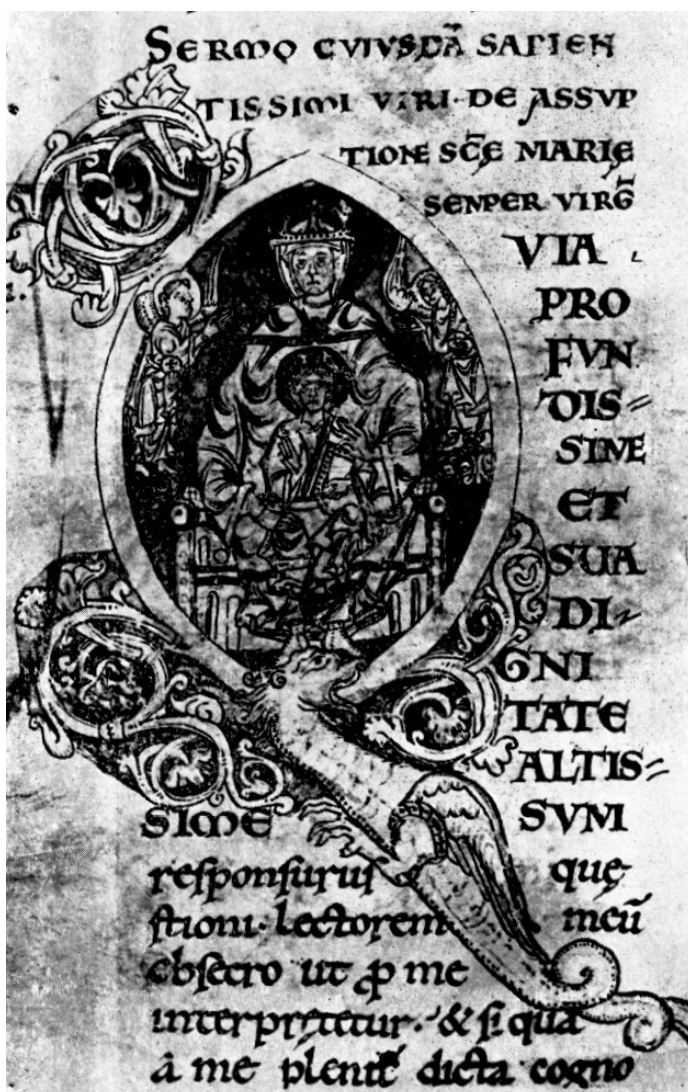 SERMO CVIVSDĀ SAPIEN
TISSIMI VIRI·DE ASSVP
TIONE SC̄Ę MARIĘ
SENPER VIRḠ
QVIA
PRO
FVN
DIS=
SIME
ET
SUA
DI-
GNI
TATE
ALTIS=
SIME SVM
responsurus quę
stioni· Lectorem meū
obsecro ut ꝑ me
interpretetur· & si qua
a me plenitẽ dicta cogno